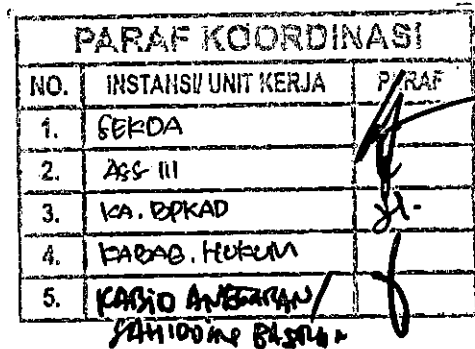 PARAF KOORDINASI
NO. INSTANSI/ UNIT KERJA PARAF
1. SEKDA
2. ASS III
3. KA. BPKAD
4. KABAG. HUKUM
5. KABID ANGGARAN